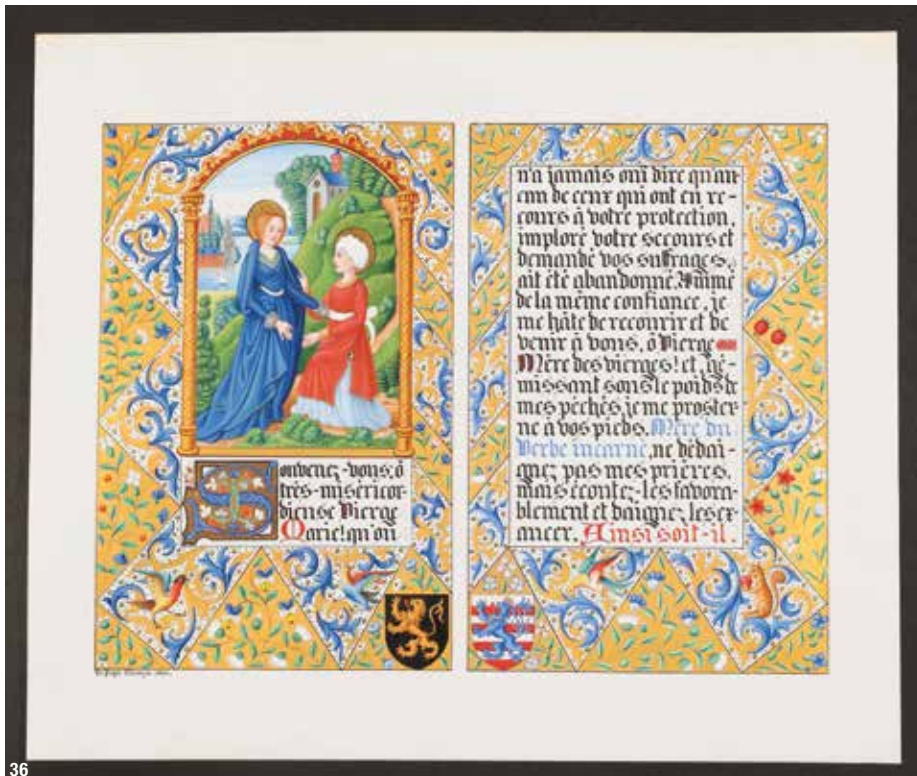 Souvenez-vous, ô
très-miséricor-
dieuse Vierge
Marie! qu'on
n'a jamais ouï dire qu'au-
cun de ceux qui ont eu re-
cours à votre protection,
imploré votre secours et
demandé vos suffrages,
ait été abandonné. Animé
de la même confiance, je
me hâte de recourir et de
venir à vous, ô Vierge
Mère des vierges! et, gé-
missant sous le poids de
mes péchés, je me proster-
ne à vos pieds. Mère du
Verbe incarné, ne dédai-
gnez pas mes prières,
mais écoutez-les favora-
blement et daignez les ex-
aucer. Ainsi soit-il.
36